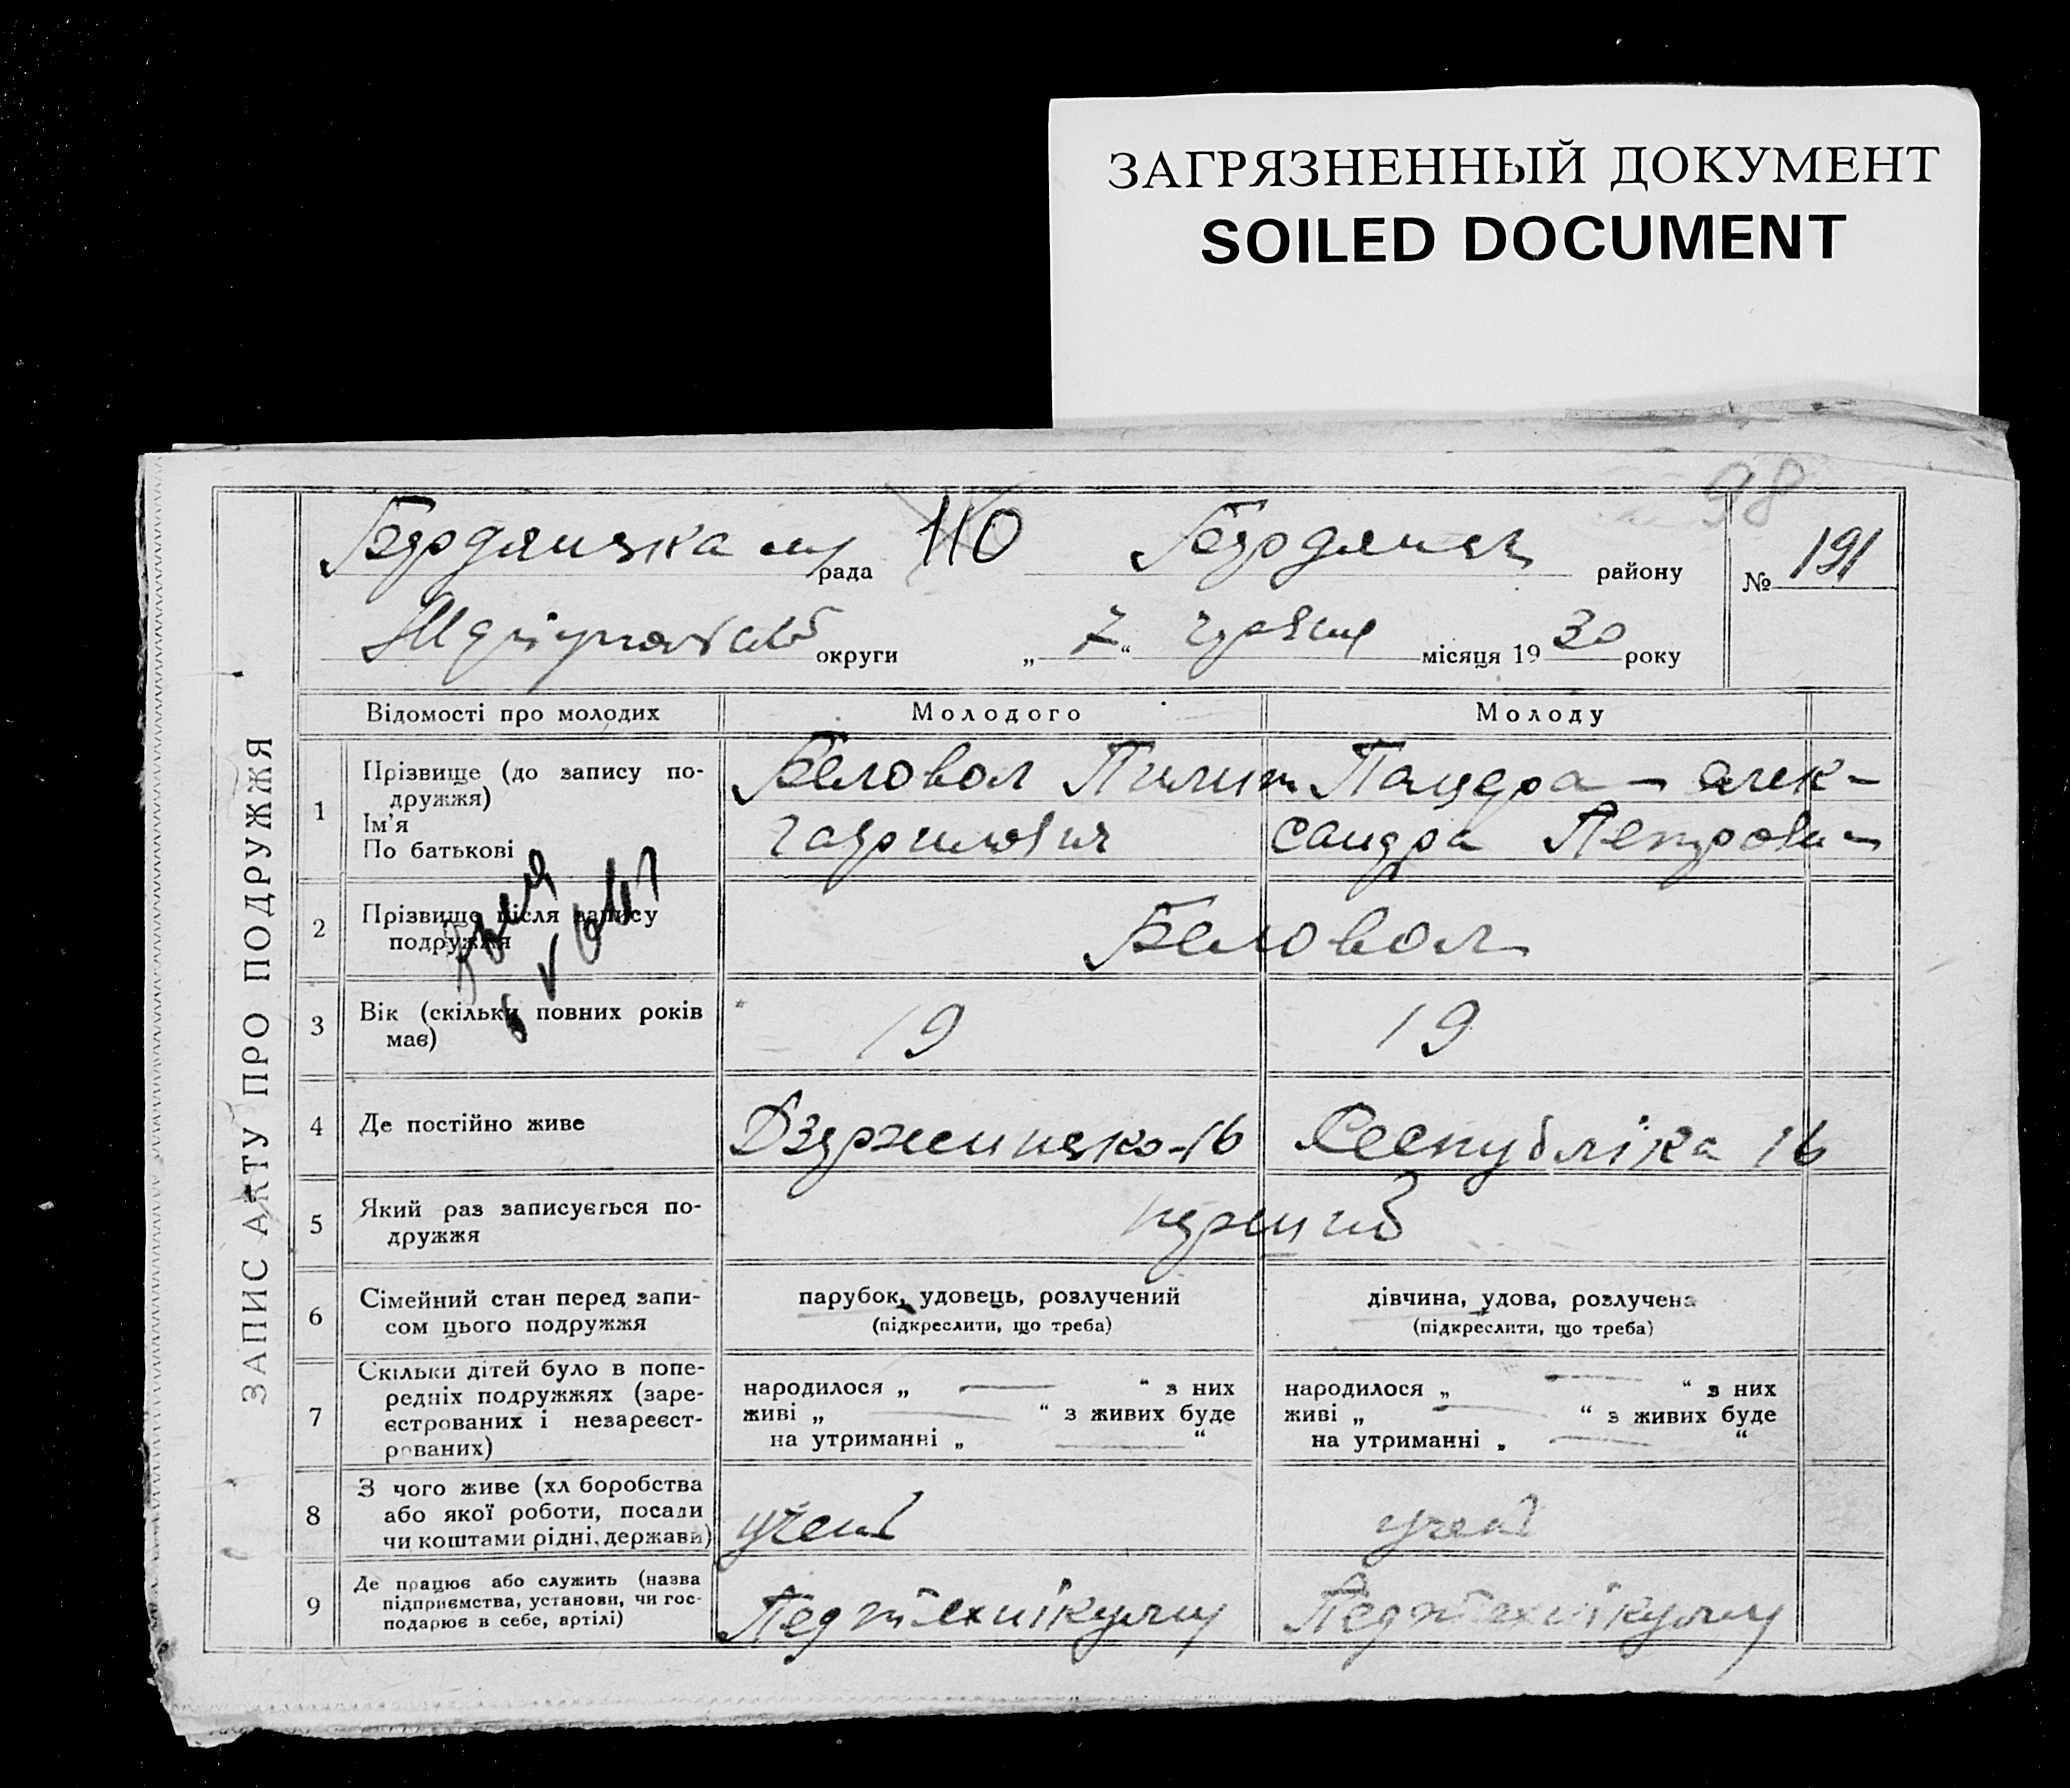 ЗАГРЯЗНЕННЫЙ ДОКУМЕНТ
SOILED DOCUMENT
98
Бердянська рада 110 Бердянськ району № 191
округи „ 7 “ червня місяця 19 30 року
ЗАПИС АКТУ ПРО ПОДРУЖЖЯ
Відомості про молодих Молодого Молоду
1 Прізвище (до запису по-
дружжя)
Ім'я
По батькові
Беловол Пилип
Гаврилович
Пацера — алек-
сандра Петровн
2 Прізвище після запису
подружжя
Беловол
3 Вік (скільки повних років
має)
19 19
4 Де постійно живе Дзержинсько-16 Республіка 16
5 Який раз записується по-
дружжя
перший
6 Сімейний стан перед запи-
сом цього подружжя
парубок, удовець, розлучений
(підкреслити, що треба)
дівчина, удова, розлучена
(підкреслити, що треба)
7 Скільки дітей було в попе-
редніх подружжях (заре-
єстрованих і незареєст-
рованих)
народилося „ — “ з них
живі „ — “ з живих буде
на утриманні „ — “
народилося „ — “ з них
живі „ — “ з живих буде
на утриманні „ — “
8 З чого живе (хл боробства
або якої роботи, посади
чи коштами рідні, держави)
учені учені
9 Де працює або служить (назва
підприємства, установи, чи гос-
подарює в себе, артілі)
Педтехнікуму Педтехнікуму